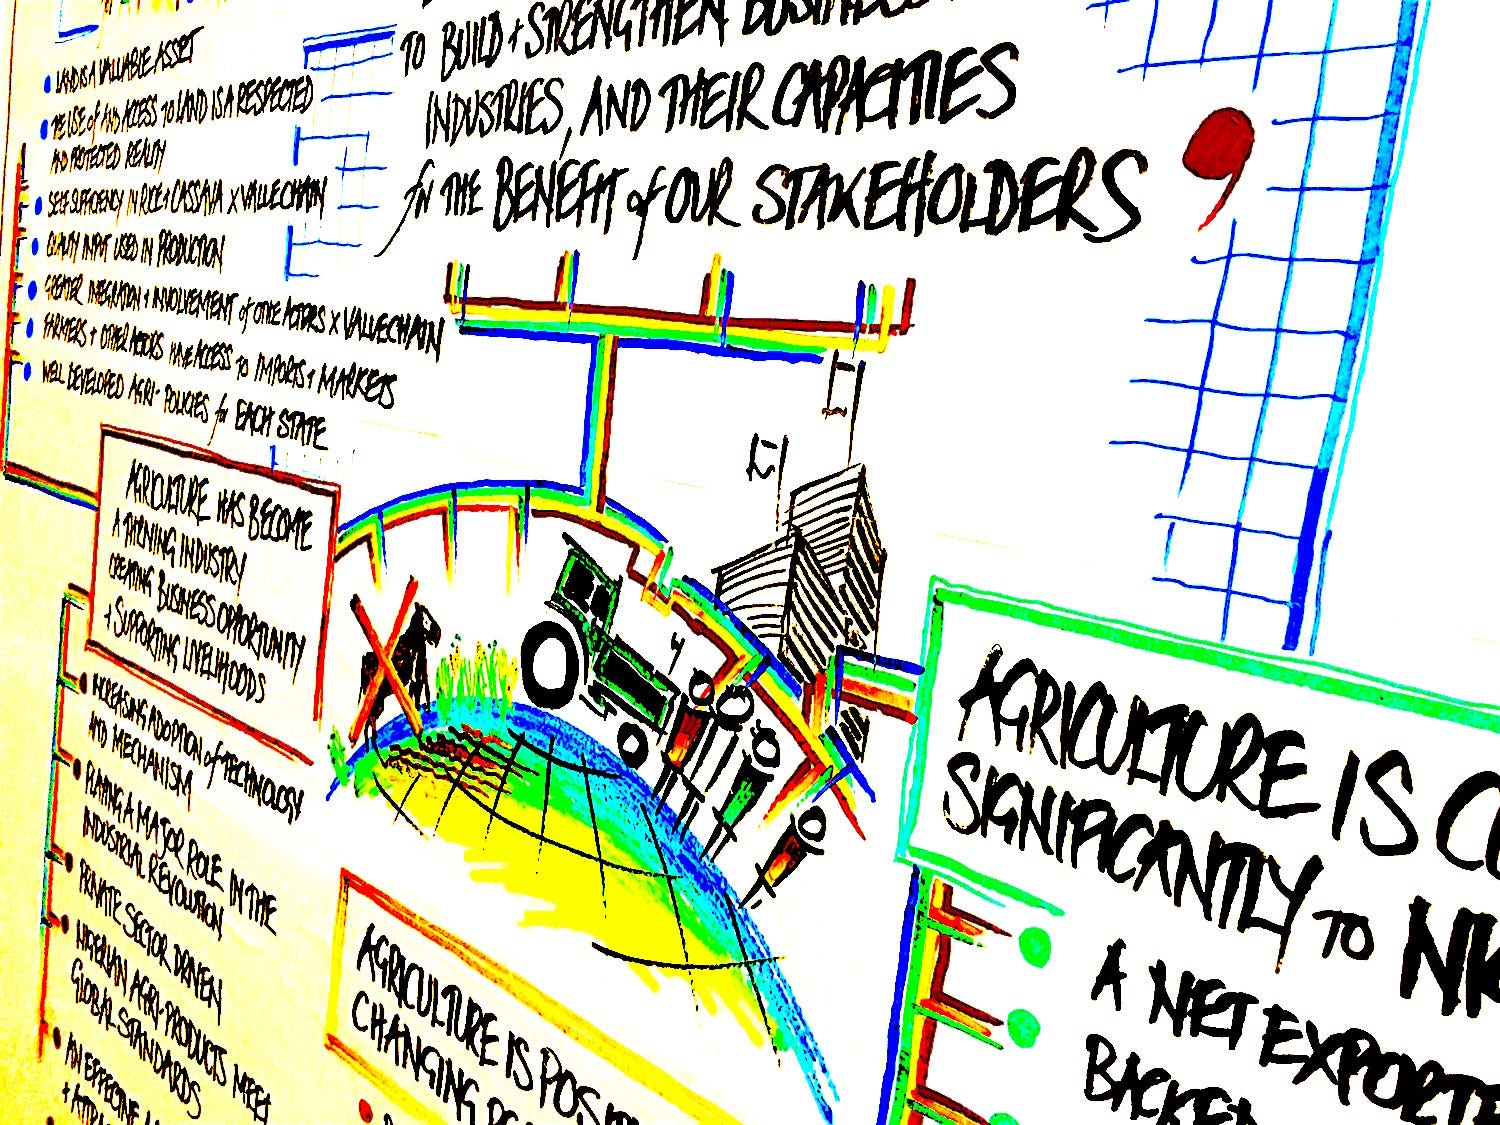 TO BUILD + STRENGTHEN BUSINESSES
INDUSTRIES, AND THEIR CAPACITIES
for THE BENEFIT of OUR STAKEHOLDERS
LAND IS A VALUABLE ASSET
THE USE of AND ACCESS TO LAND IS A RESPECTED
AND PROTECTED REALITY
SELF SUFFICIENCY IN RICE + CASSAVA x VALUECHAIN
QUALITY INPUT USED IN PRODUCTION
GREATER INTEGRATION + INVOLVEMENT of OTHER ACTORS x VALUECHAIN
FARMERS + OTHER ACTORS HAVE ACCESS TO IMPORTS + MARKETS
WELL DEVELOPED AGRI- POLICIES for EACH STATE
AGRICULTURE HAS BECOME
A THRIVING INDUSTRY
CREATING BUSINESS OPPORTUNITY
+ SUPPORTING LIVELIHOODS
INCREASING ADOPTION of TECHNOLOGY
AND MECHANISM
PLAYING A MAJOR ROLE IN THE
INDUSTRIAL REVOLUTION
PRIVATE SECTOR DRIVEN
NIGERIAN AGRI-PRODUCTS MEET
GLOBAL STANDARDS
AN EFFECTIVE
AGRICULTURE IS
CHANGING
AGRICULTURE IS
SIGNIFICANTLY TO
A NET EXPORTE
BACKED